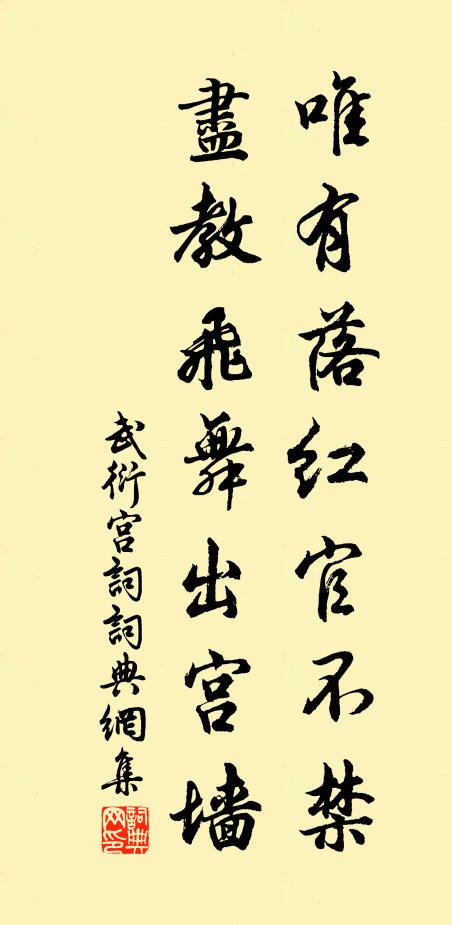 唯有落红官不禁
盡教飛舞出宫墙
武衍宫詞詞典網集
詞典網印